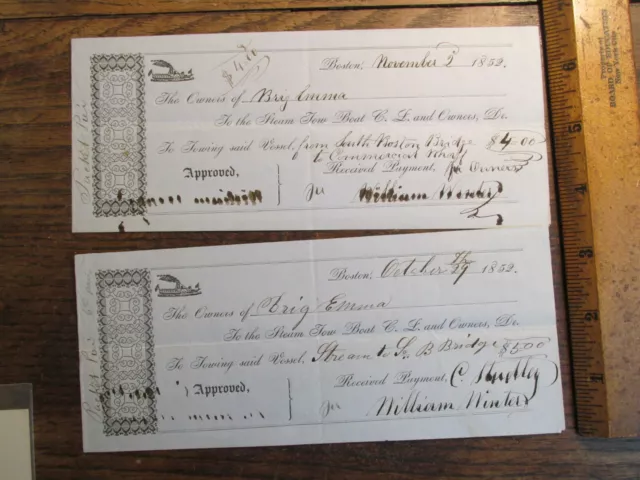 $4.00
Boston, November 2 1852.
The Owners of Brig Emma
To the Steam Tow Boat C. L. and Owners, Dr.
To Towing said Vessel, from South Boston Bridge $4.00
to Commercial Wharf
Received Payment, for Owners
Approved,
William Winter
Boston, October 29 1852.
The Owners of Brig Emma
To the Steam Tow Boat C. L. and Owners, Dr.
To Towing said Vessel, Stream to So B Bridge $5.00
Received Payment,
Approved,
William Winter
BOARD OF
6
5
4
3
2